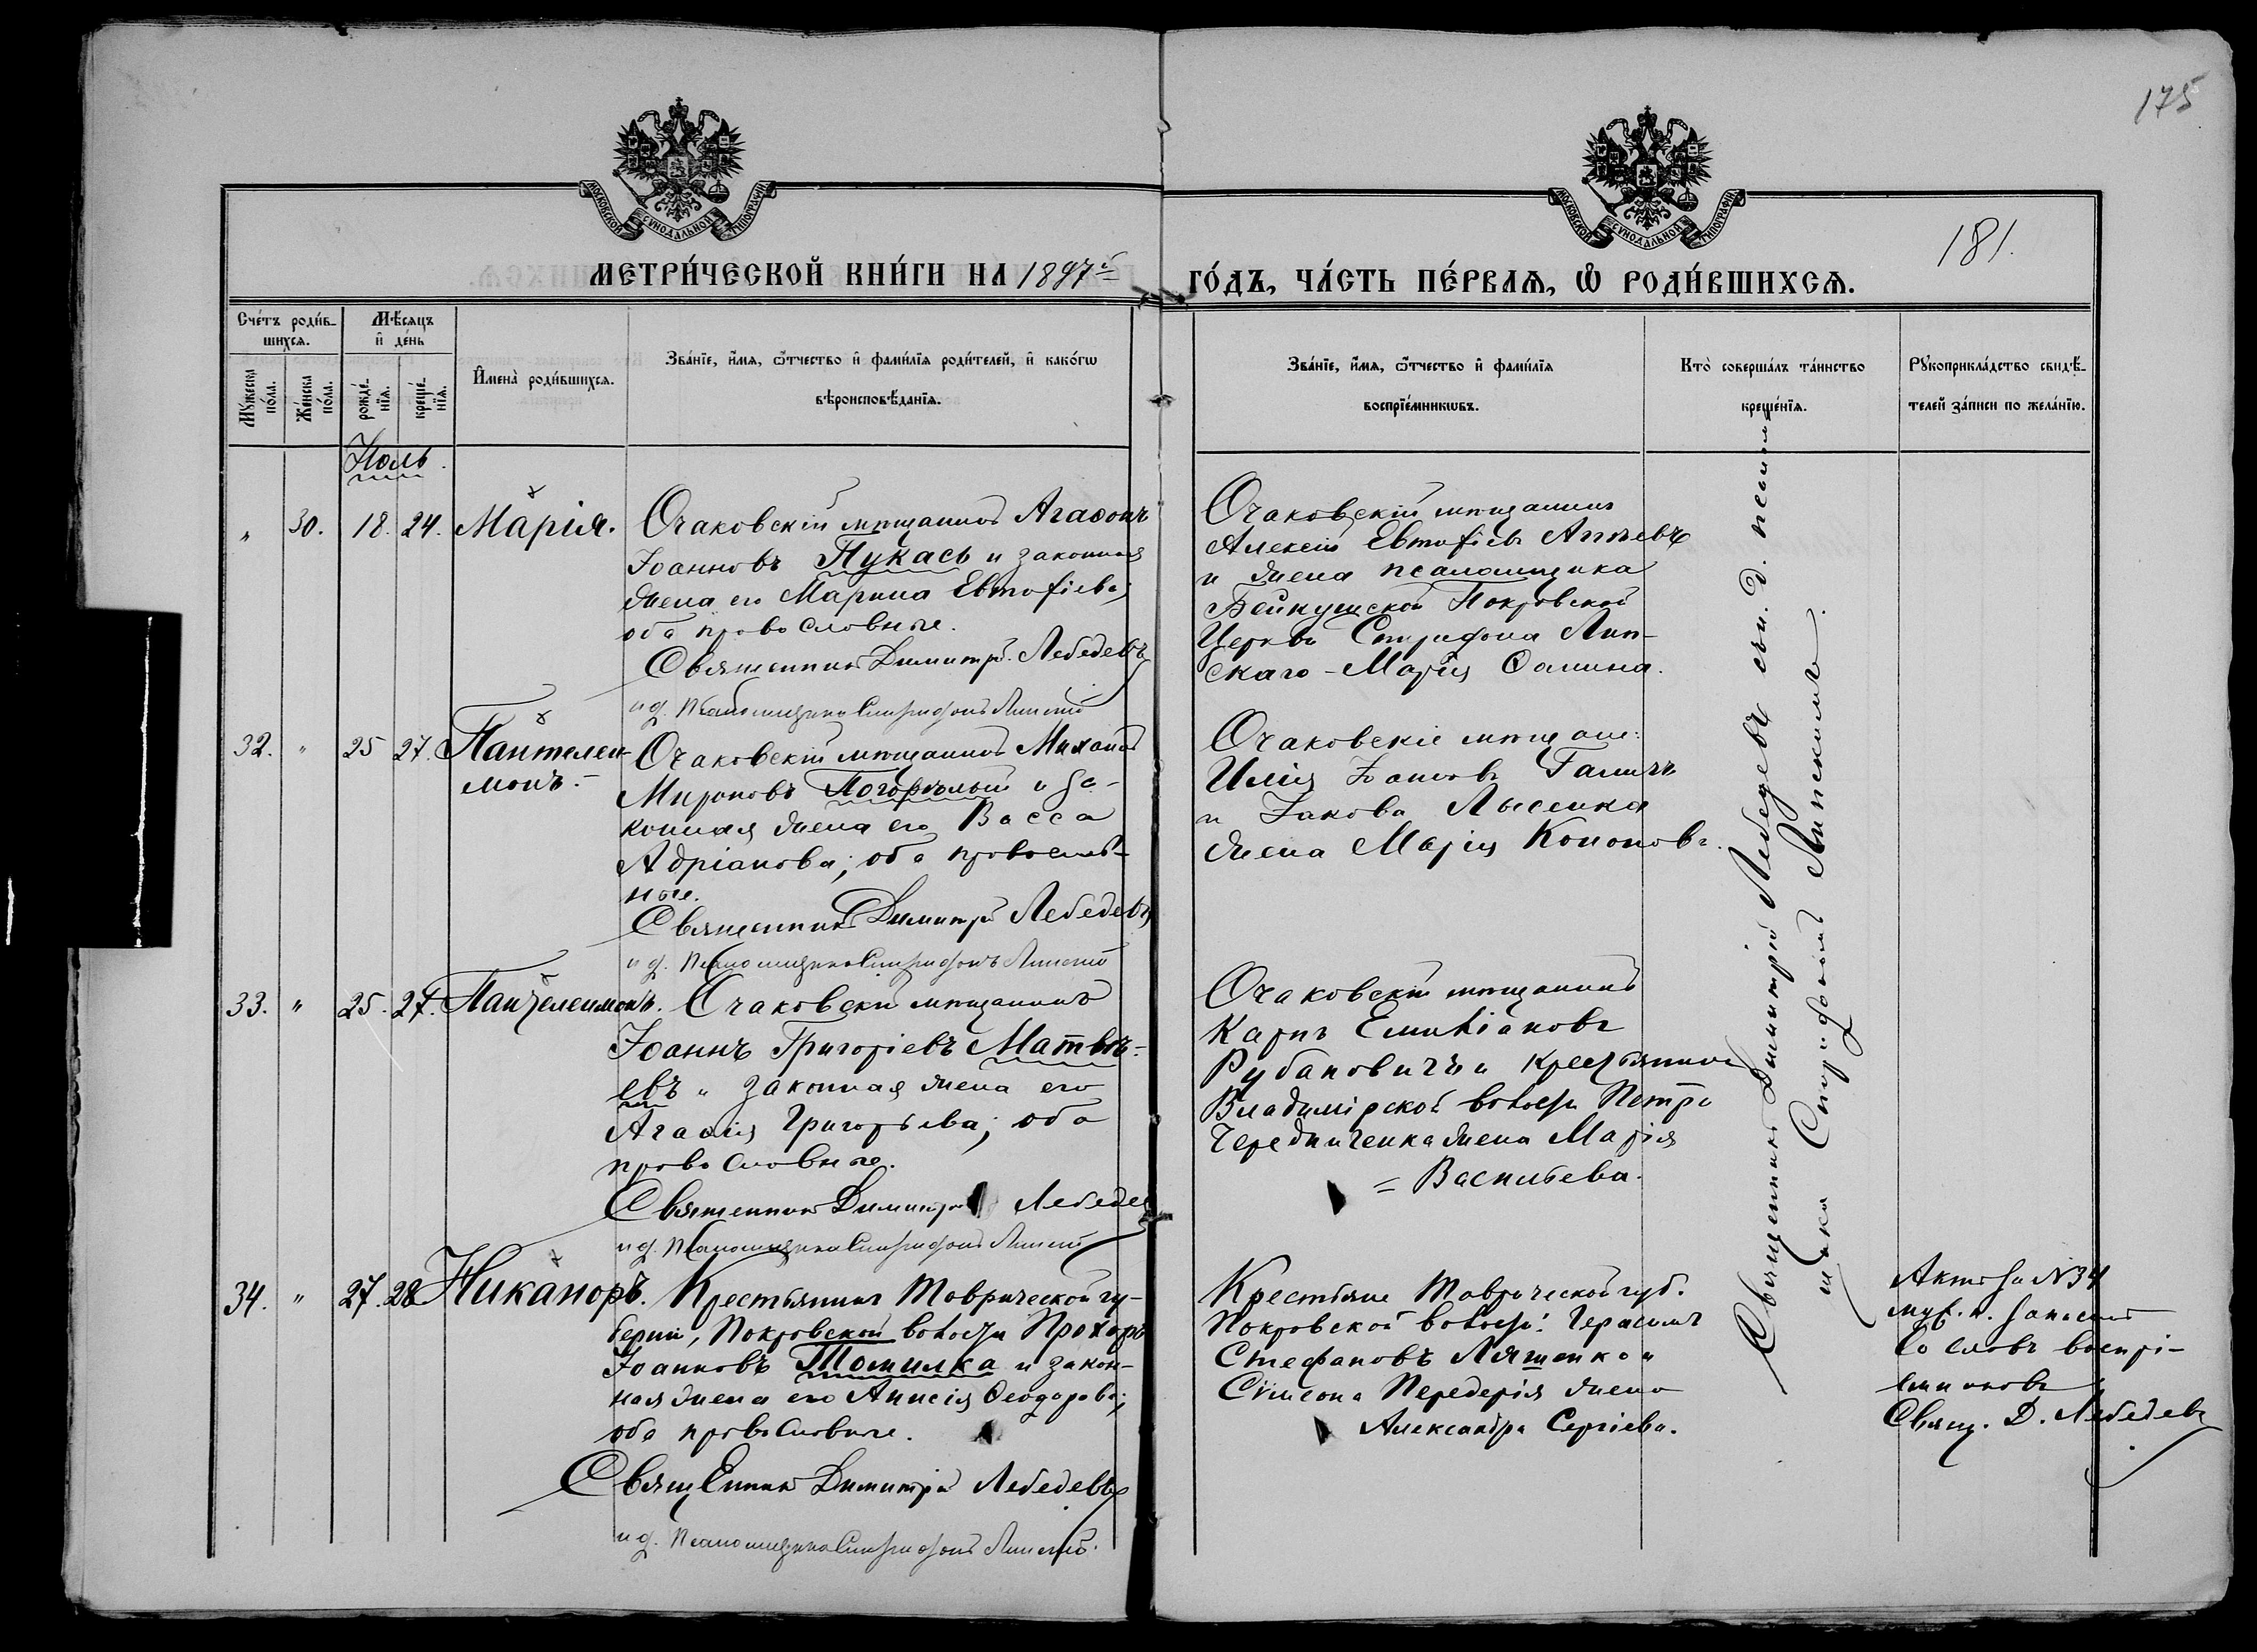 175
181.
МОСКОВСКОЙ СѴНОДАЛЬНОЙ ТИПОГРАФІИ
МОСКОВСКОЙ СѴНОДАЛЬНОЙ ТИПОГРАФІИ
МЕТРИ́ЧЕСКОЙ КНИ́ГИ НА 1897й ГО́ДЪ, ЧА́СТЬ ПЕ́РВАѦ, Ѽ РОДИ́ВШИХСѦ.
Сче́тъ роди́в-
шихсѧ.
Мꙋ́жеска по́ла.
Же́нска по́ла.
Мѣ́сѧцъ
и҆ де́нь
рожде́-
нїѧ.
креще́-
нїѧ.
И҆мена̀ роди́вшихсѧ.
Зва́нїе, и҆́мѧ, ѻ҆́тчество и҆ фами́лїѧ роди́телей, и҆ како́гѡ
вѣроисповѣ́данїѧ.
Зва́нїе, и҆́мѧ, ѻ҆́тчество и҆ фами́лїѧ
воспрїе́мникѡвъ.
Кто̀ соверша́лъ та́инство
креще́нїѧ.
Рꙋкоприкла́дство свидѣ́-
телей за́писи по жела́нїю.
Іюль.
" 30. 18. 24. Марія.
Очаковскій мѣщанинъ Агаѳонъ
Іоанновъ Пукась и законная
жена его Марина Евтофіева;
оба православные.
Священникъ Димитрій Лебедевъ
и д. Псаломщика Спиридонъ Липскій
Очаковскій мѣщанинъ
Алексій Евтофіевъ
и жена псаломщика
Бейкушской Покровской
Церкви Спиридона Лип-
скаго - Марія Ѳомина.
32. " 25 27. Пантелеи-
монъ.
Очаковскій мѣщанинъ Михаилъ
Мироновъ Погорѣлый и за-
конная жена его Васса
Адріанова; оба православ-
ные.
Священникъ Димитрій Лебедевъ
и д. Псаломщика Спиридонъ Липскій
Очаковскіе мѣщане:
Илія Іоанновъ Галичъ
и Іакова Лысенка
жена Марія Кононова.
33. " 25. 27. Пантелеимонъ.
Очаковскій мѣщанинъ
Іоаннъ Григоріевъ Матвѣ-
евъ и законная жена его
Агаѳія Григорьева; оба
православные.
Священникъ Димитрій Лебедевъ
и д. Псаломщика Спиридонъ Липскій
Очаковскій мѣщанинъ
Карпъ Емиліановъ
Рубановичъ и крестьянина
Владимірской волости Петра
Чередниченка жена Марія
= Васильева.
34. " 27. 28 Никаноръ.
Крестьянинъ Таврической гу-
берніи, Покровской волости Прохоръ
Іоанновъ Томилка и закон-
ная жена его Анисія Ѳеодорова;
оба православные.
Священникъ Димитрій Лебедевъ
и д. Псаломщика Спиридонъ Липскій.
Крестьяне Таврической губ.
Покровской волости: Герасимъ
Стефановъ Ляшенко и
Сѵмеона Передерія жена
Александра Сергіева.
Священникъ Димитрій Лебедевъ съ и. д. псалом-
щика Спиридономъ Липскимъ.
Актъ за №34
муж. п. записанъ
Со словъ воспрі-
емниковъ
Свящ. Д. Лебедевъ